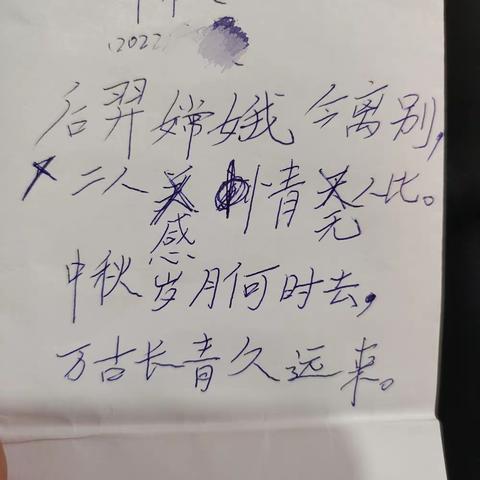 (2022
后羿嫦娥今离别,
二人感情无人比。
中秋岁月何时去,
万古长青久远来。